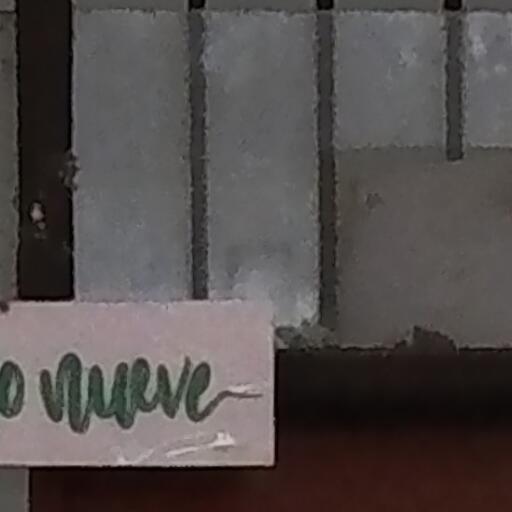 o nueve